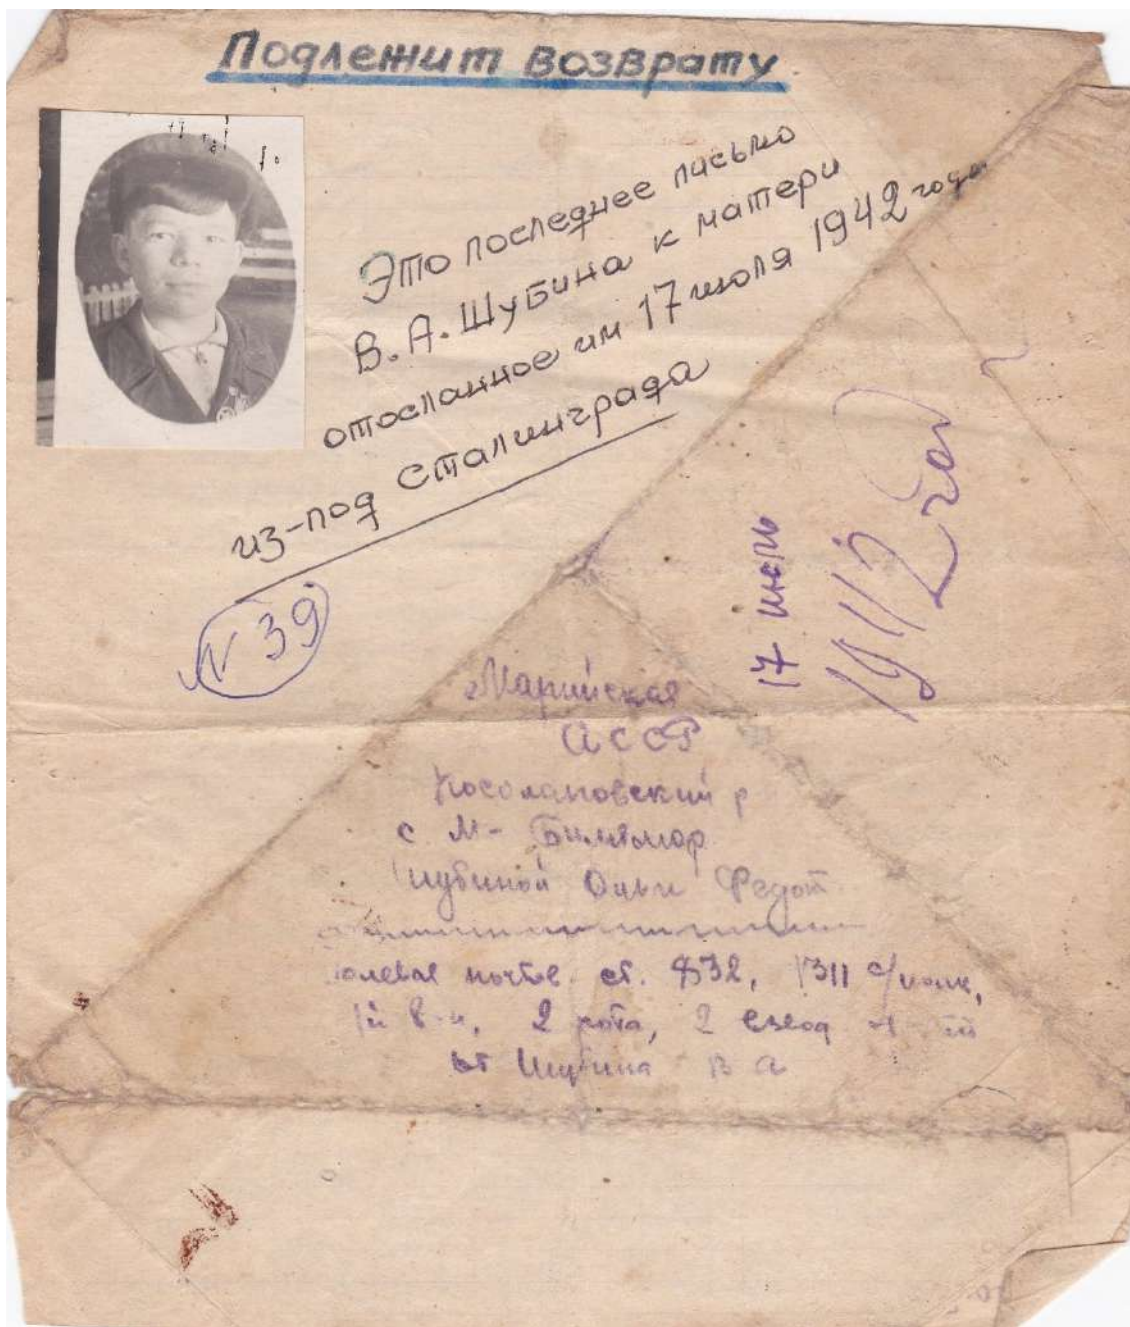 Подлежит возврату
Это последнее письмо
В.А. Шубина к матери
отосланное им 17 июля 1942 года
из-под Сталинграда
N 39
17 июль
1942 год
Марийская
АССР
Косолаповский р
с М-Билямор
Шубиной Ольги Федот
полевая почтов. ст. 832, 1311 с/полк,
2 рота, 2 взвод
от Шубина В А